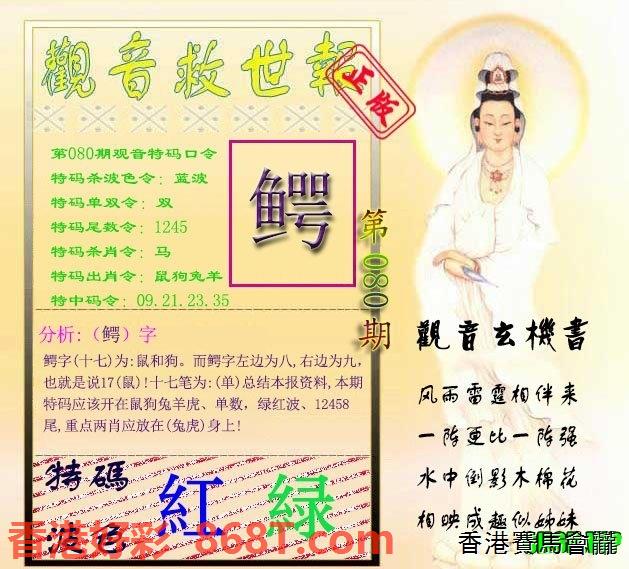 觀音救世報
正版
第080期观音特码口令
特码杀波色令：蓝波
特码单双令：双
特码尾数令：1245
特码杀肖令：马
特码出肖令：鼠狗兔羊
特中码令：09.21.23.35
鳄
第080期
分析:（鳄）字
鳄字(十七)为:鼠和狗。而鳄字左边为八,右边为九,
也就是说17(鼠)!十七笔为:(单)总结本报资料,本期
特码应该开在鼠狗兔羊虎、单数，绿红波、12458
尾,重点两肖应放在(兔虎)身上!
特碼
波色
紅 绿
觀音玄機書
风雨雷霆相伴来
一阵更比一阵强
水中倒影木棉花
相映成趣似姊妹
香港好彩 868T.com
香港賽馬會